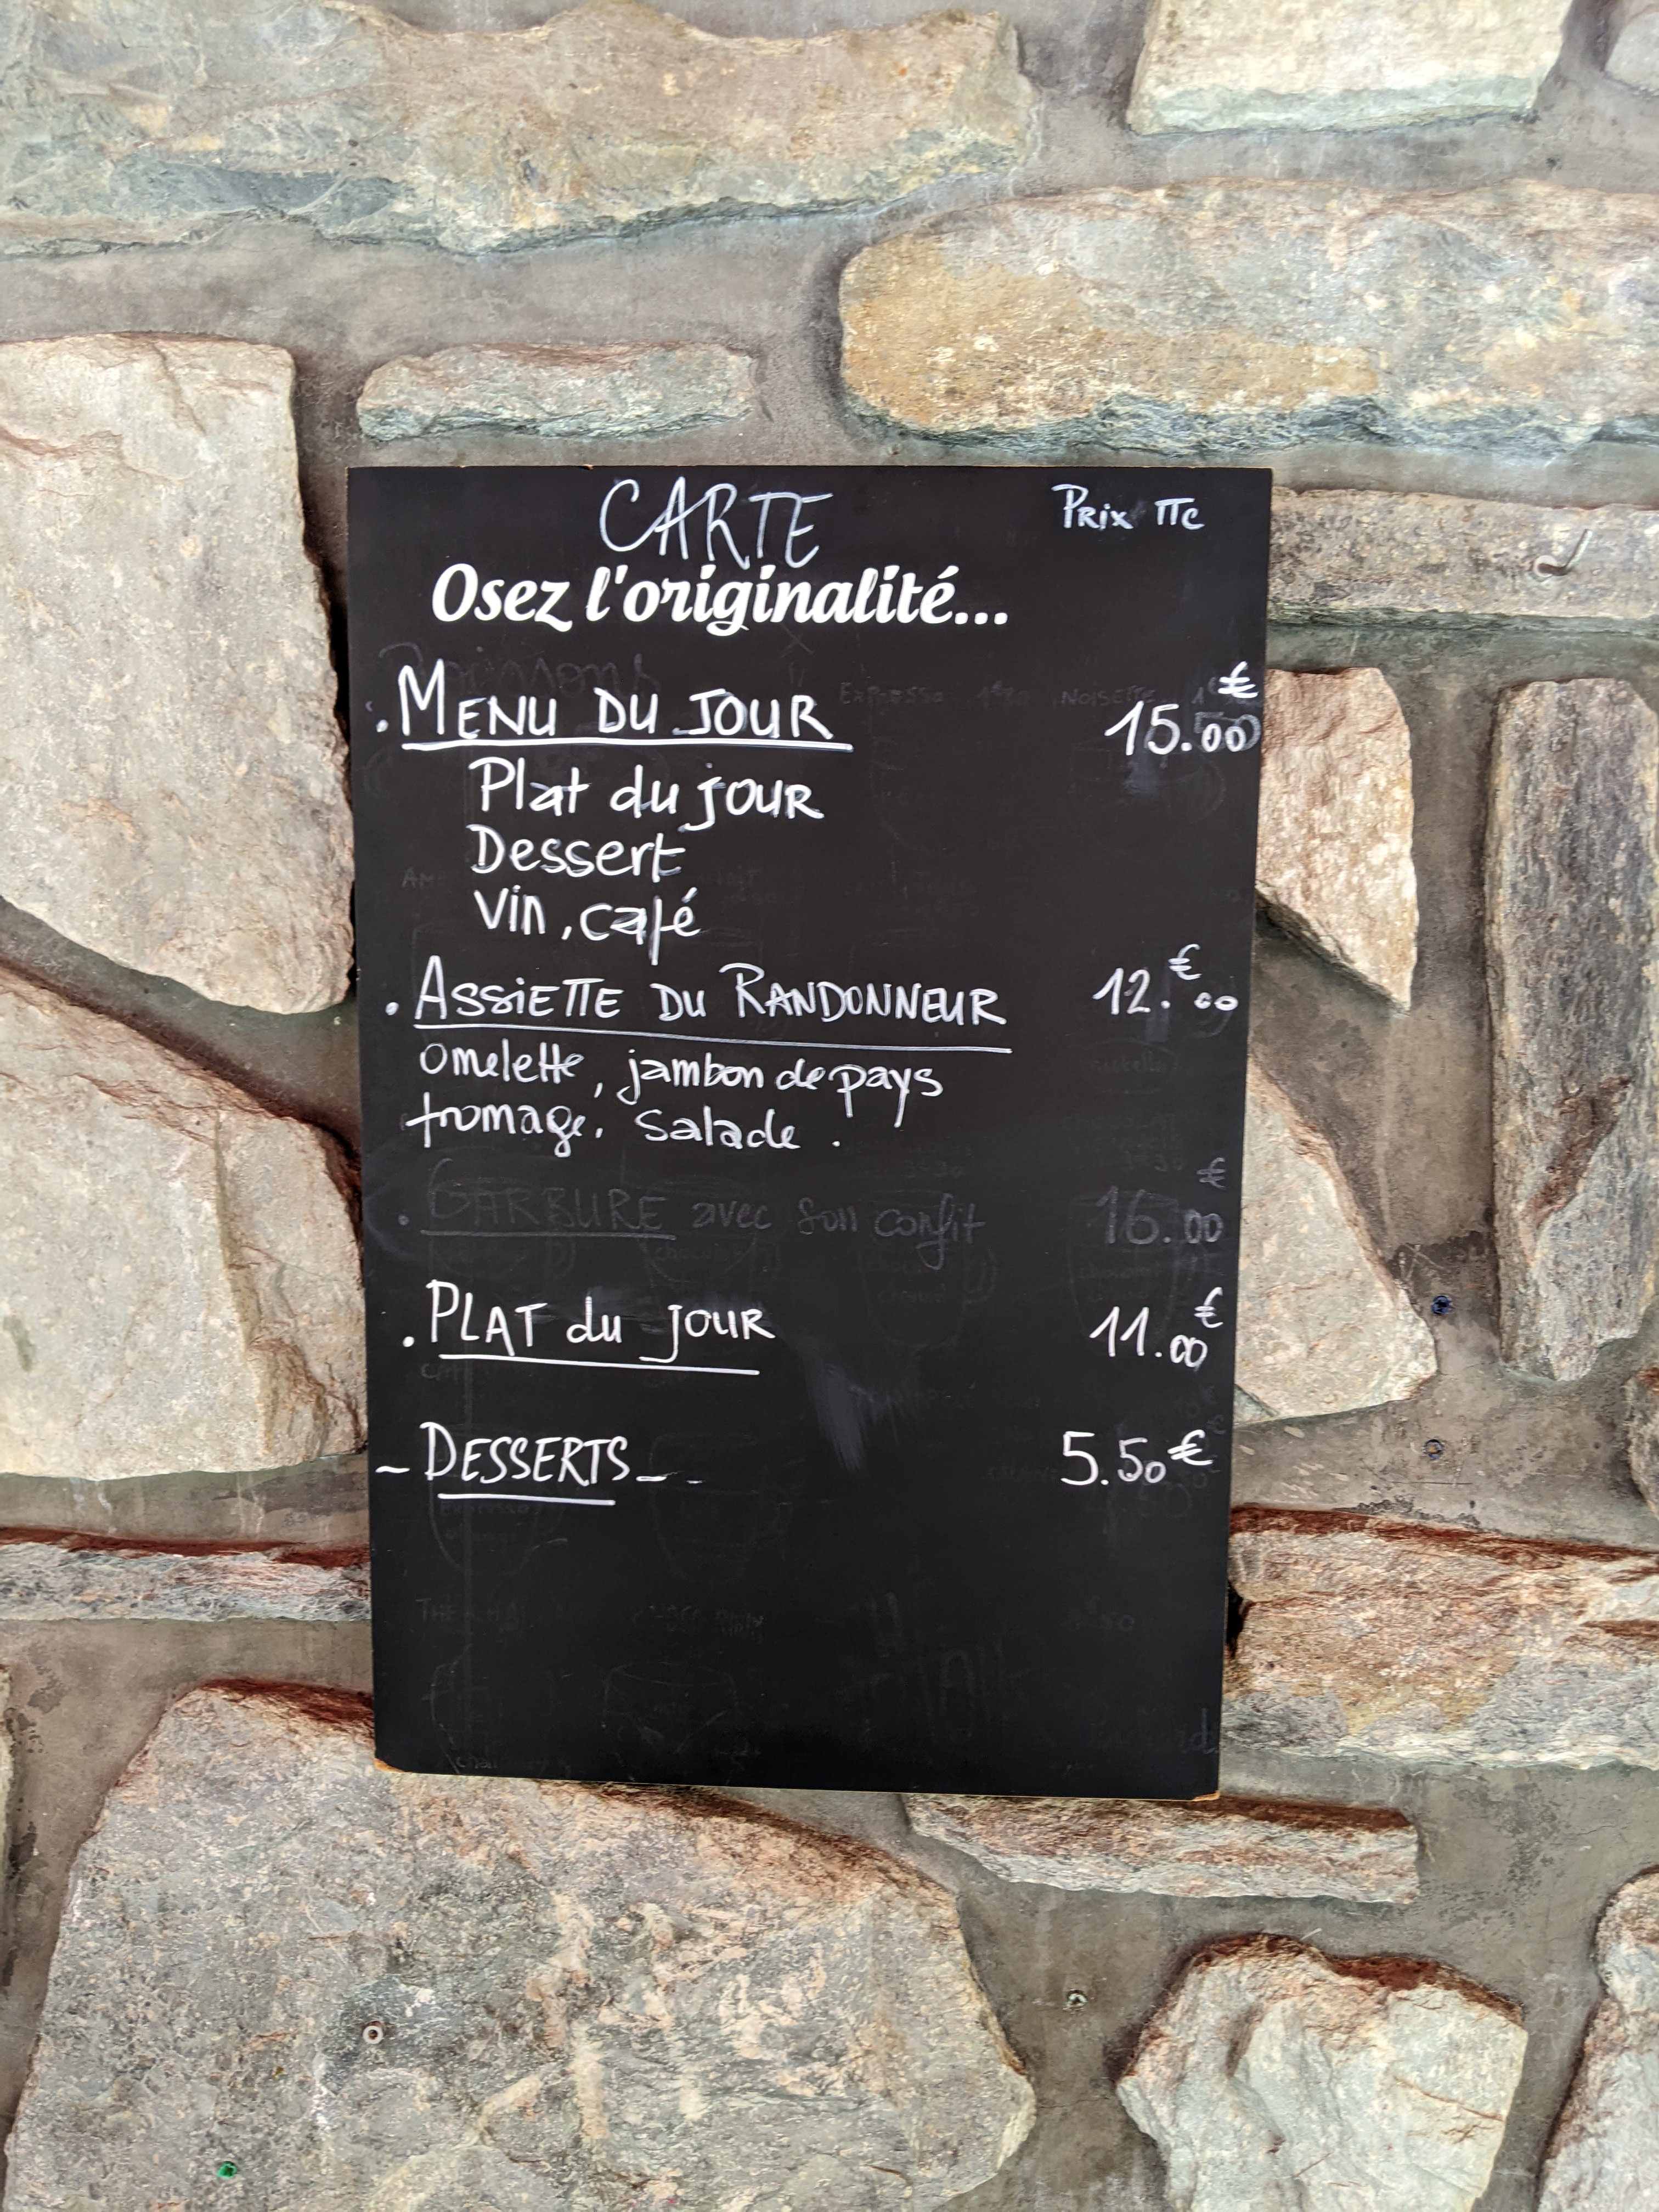 CARTE Prix TTC
Osez l'originalité...
. MENU DU JOUR 15.00€
Plat du jour
Dessert
Vin, café
. ASSIETTE DU RANDONNEUR 12.€00
Omelette, jambon de pays
fromage, Salade.
. GARBURE avec son confit 16.00€
. PLAT du jour 11.00€
- DESSERTS - - 5.50€